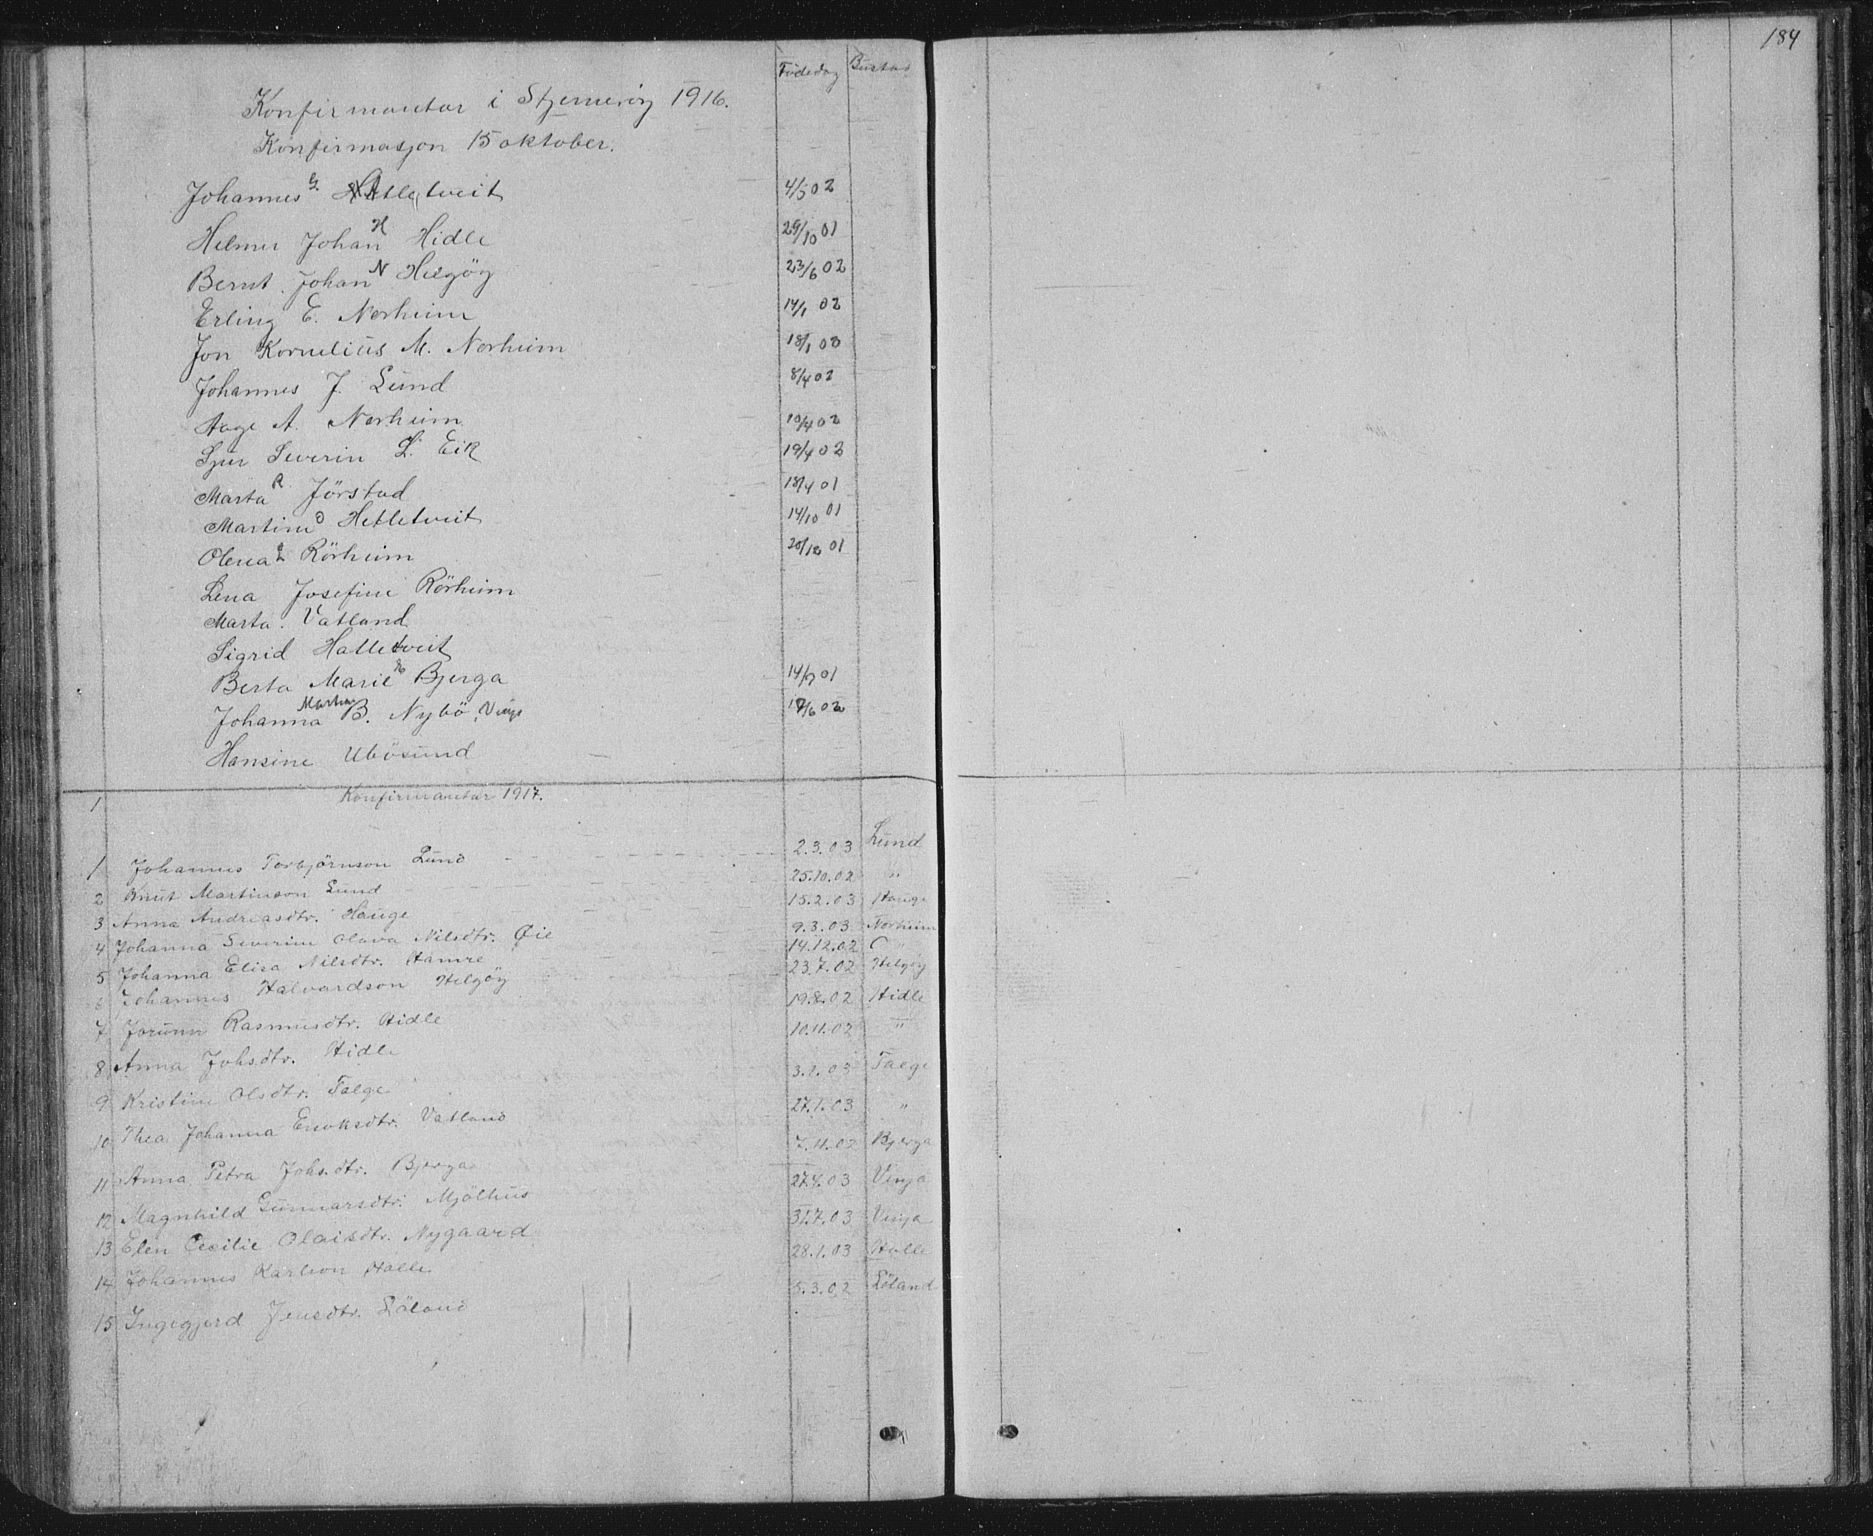 184
Födedag Bustad
Konfirmantar i Stjernerøy 1916.
Konfirmasjon 15 oktober.
Johannes G. Hetletveit 4/5 02
Helmer Johan H Hidle 29/10 01
Bernt Johan N Helgøy 23/6 02
Erling E. Norheim 14/1 02
Jon Kornelius M. Norheim 18/1 02
Johannes J. Lund 8/4 02
Aage A. Norheim 10/4 02
Sjur Severin L. Eik 19/4 02
Marta R Jörstad 18/4 01
Martine O Hetletveit 14/10 01
Olena Rörheim 20/12 01
Lena Josefine Rörheim
Marta Vatland
Sigrid Halletveit
Berta Marie Bjerga 14/9 01
Johanna Martha B. Nybö, Vinje 17/6 02
Hansine Ubösund
1 Konfirmantar 1917.
1 Johannes Torbjörnson Lund 2.3.03 Lund
2 Knut Martinson Lund 25.10.02 "
3 Anna Andreasdtr. Hauge 15.2.03 Hauge
4 Johanna Severine Olava Nilsdtr. Øie 9.3.03 Norheim
5 Johanna Elisa Nilsdtr. Hamre 14.12.02 "
6 Johannes Halvardson Helgöy 23.7.02 Helgöy
7 Jorunn Rasmusdtr. Hidle 19.8.02 Hidle
8 Anna Johsdtr. Hidle 10.11.02 "
9 Kristine Olsdtr. Talge 3.2.03 Talge
10 Thea Johanna Enoksdtr. Vatland 27.1.03 "
11 Anna Petra Johs.dtr. Bjerga 7.11.02 Bjerga
12 Magnhild Gunnarsdtr. Mjölhus 27.4.03 Vinja
13 Elen Cecilie Olaisdtr. Nygaard 31.7.03 Vinja
14 Johannes Karlson Halle 28.1.03 Halle
15 Ingegjerd Jensdtr. Löland 5.3.02 Löland